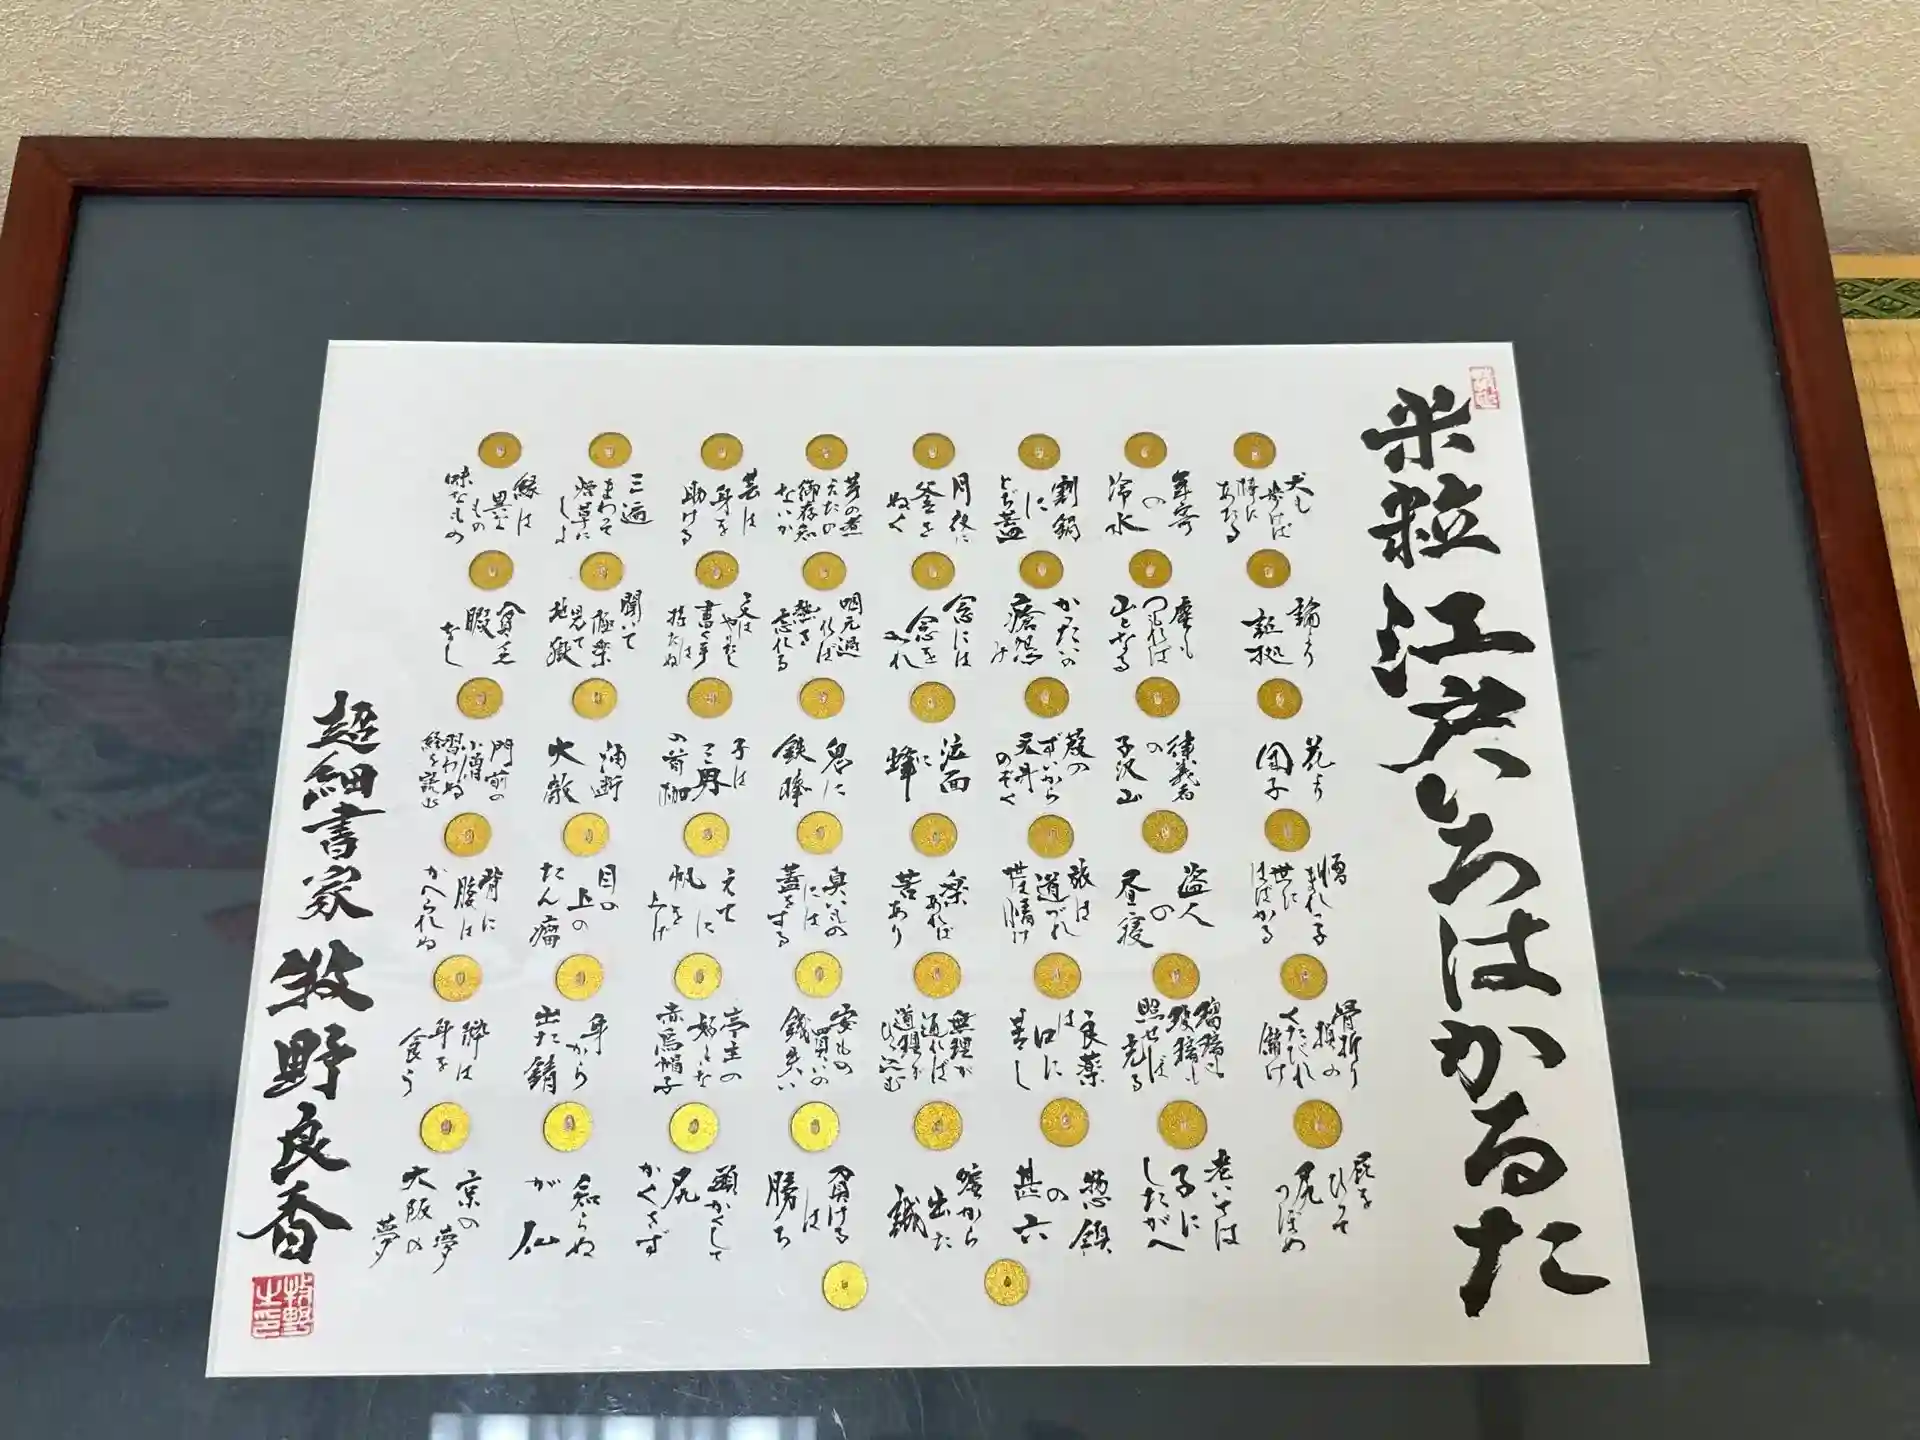 米粒江戸いろはかるた
犬も
歩けば
棒に
あたる
年寄
の
冷水
割鍋
に
とじ蓋
月夜に
釜を
ぬく
芋の煮
えたの
御存知
ないか
芸は
身を
助ける
三遍
まわって
煙草に
しょ
縁は
異な
もの
味なもの
論より
証拠
塵も
つもれば
山となる
かったいの
瘡怨み
念には
念を
入れ
咽元過
ぐれば
熱さ
忘れる
文は
やりたし
書く手は
持たぬ
聞いて
極楽
見て
地獄
貧乏
暇
なし
花より
団子
律義者
の
子沢山
葭の
ずいから
天井
のぞく
泣面
に
蜂
鬼に
鉄棒
子は
三界
の首枷
油断
大敵
門前の
小僧
習わぬ
経を読む
憎
まれっ子
世に
はばかる
盗人
の
昼寝
旅は
道づれ
世は情け
楽
あれば
苦あり
臭いもの
には
蓋をする
えて
に
帆を
上げ
目の
上の
たん瘤
背に
腹は
かへられぬ
骨折り
損の
くたびれ
儲け
瑠璃も
玻璃も
照せば
光る
良薬
は
口に
苦し
無理が
通れば
道理が
ひっ込む
安もの
買いの
銭失い
亭主の
好きな
赤烏帽子
身から
出た錆
粋は
身を
食う
屁を
ひって
尻
つぼめ
老いては
子に
したがへ
惣領
の
甚六
嘘から
出た
誠
負ける
は
勝ち
頭かくして
尻
かくさず
知らぬ
が
仏
京の夢
大阪の
夢
超細書家 牧野良香
牧野
之印